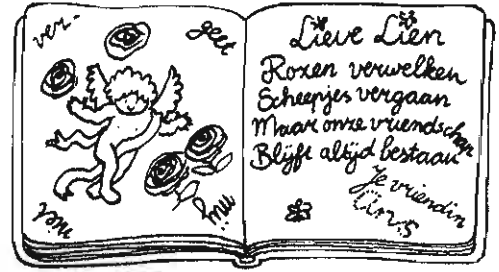 ver-
geet
mij
niet
Lieve Lien
Rozen verwelken
Scheepjes vergaan
Maar onze vriendschap
Blijft altijd bestaan
Je vriendin